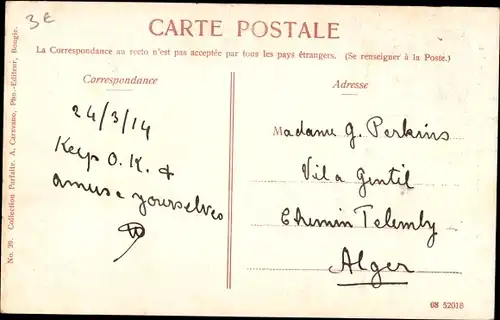 3€
CARTE POSTALE
La Correspondance au recto n'est pas acceptée par tous les pays étrangers. (Se renseigner à la Poste.)
Correspondance
24/3/14
Keep O.K. &
amuse yourselves
Adresse
Madame G. Perkins
Villa Gentil
Chemin Telemly
Alger
08 52018
No. 39. Collection Parfaite. A. Caravano, Pho.-Editeur, Bougie.